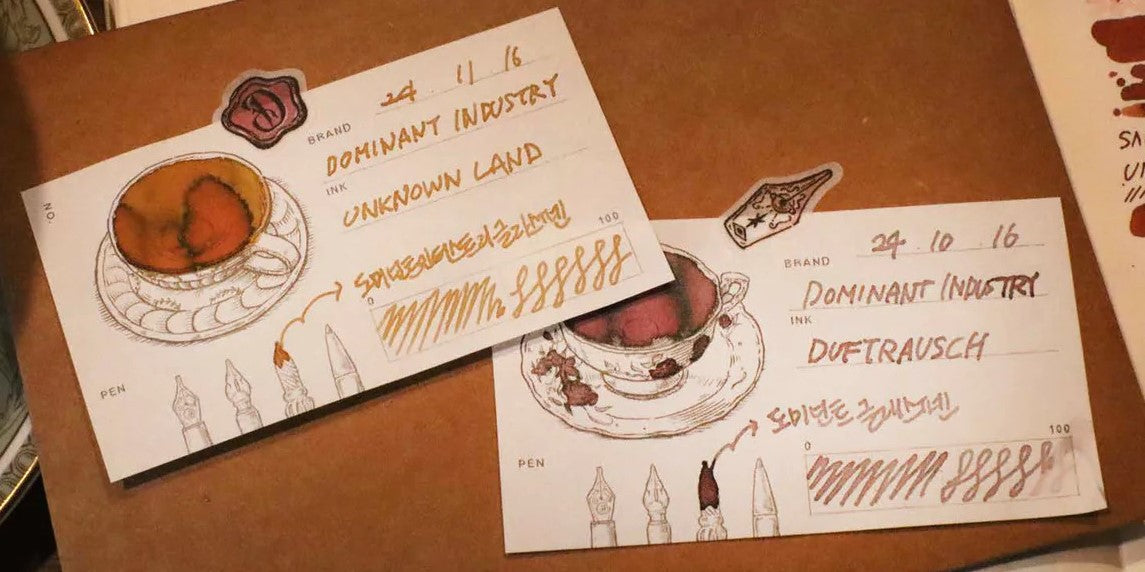 24 11 16
BRAND
DOMINANT INDUSTRY
INK
UNKNOWN LAND
도미넌트인더스트리 글라스펜
0 100
NO.
PEN
24 10 16
BRAND
DOMINANT INDUSTRY
INK
DUFTRAUSCH
도미넌트 글라스펜
0 100
PEN